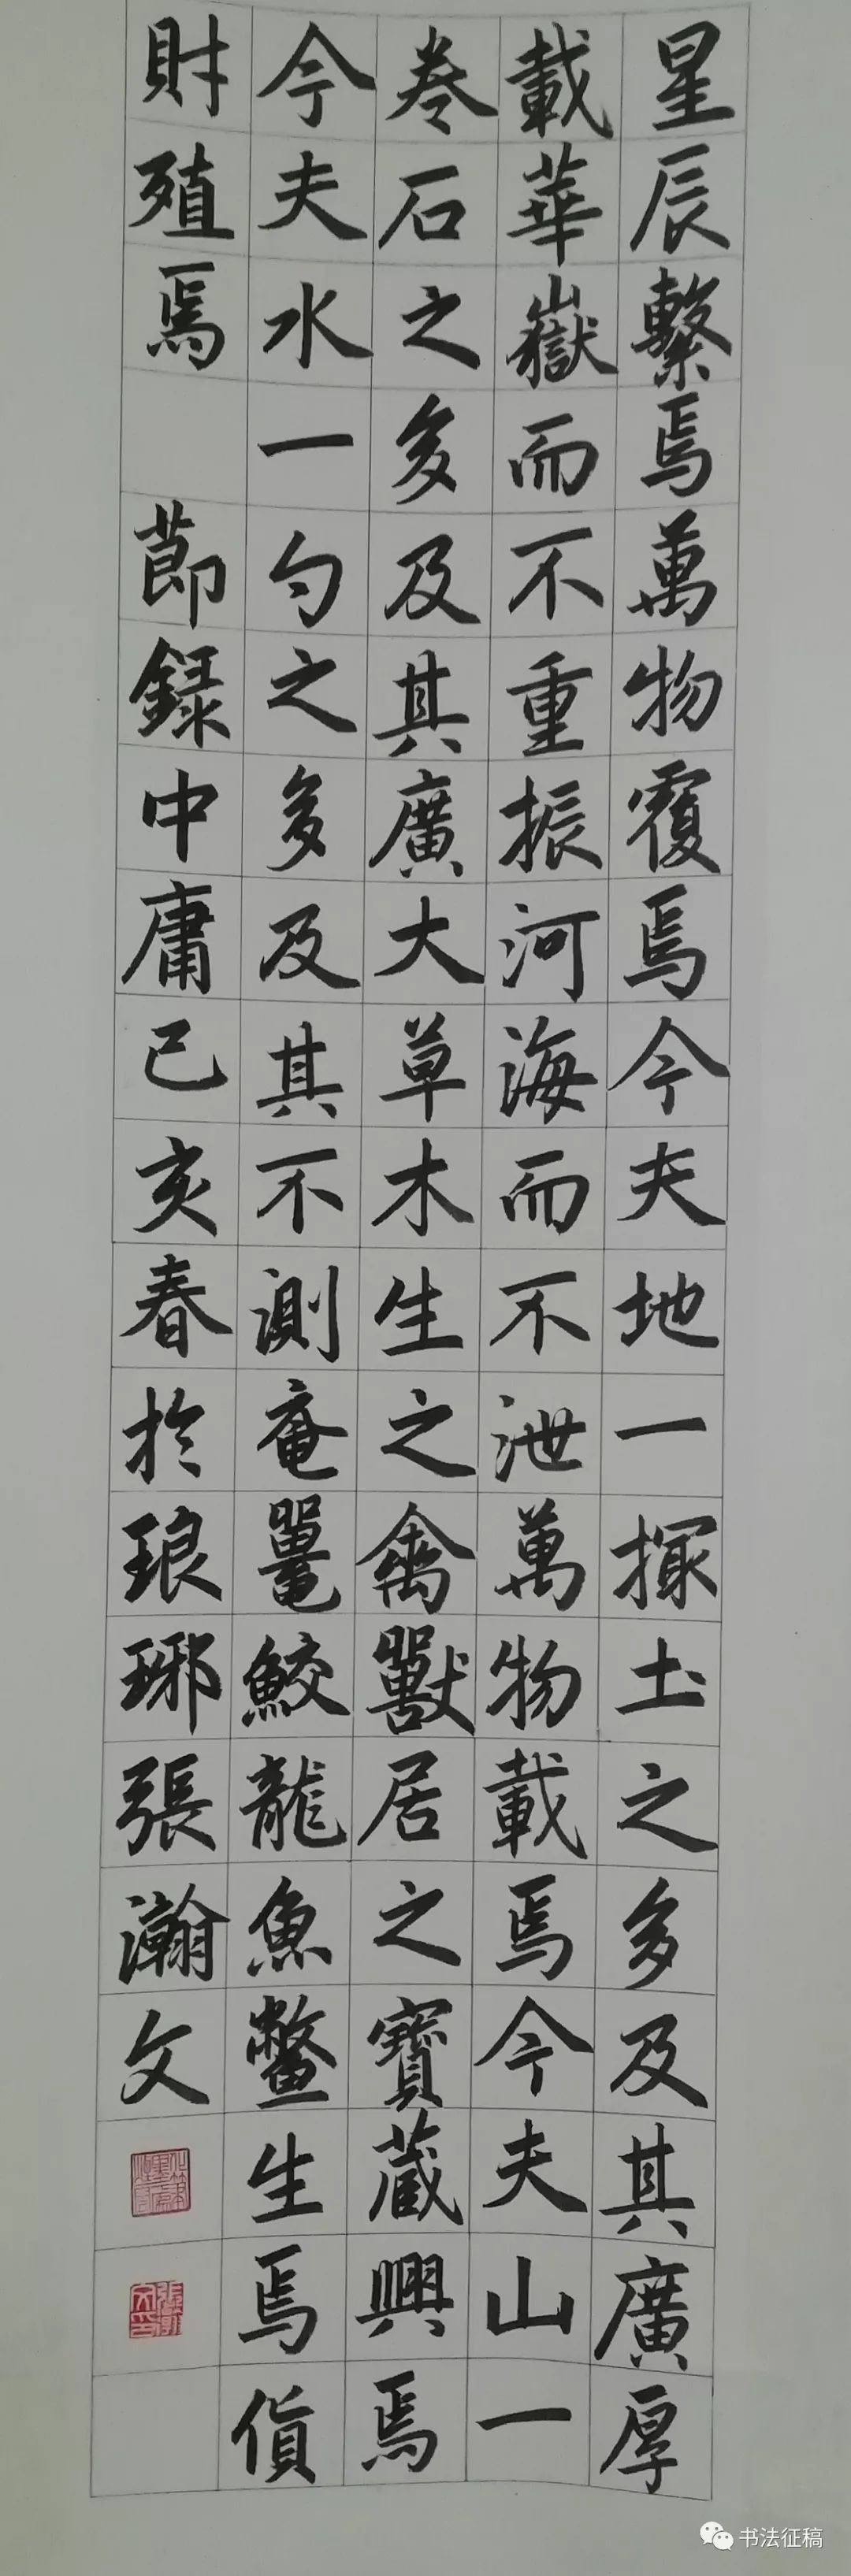 星辰繫焉萬物覆焉今夫地一撮土之多及其廣厚
載華嶽而不重振河海而不泄萬物載焉今夫山一
卷石之多及其廣大草木生之禽獸居之寶藏興焉
今夫水一勺之多及其不測黿鼉鮫龍魚鱉生焉貨
財殖焉 節錄中庸己亥春於琅琊張瀚文
张瀚文印
书法征稿